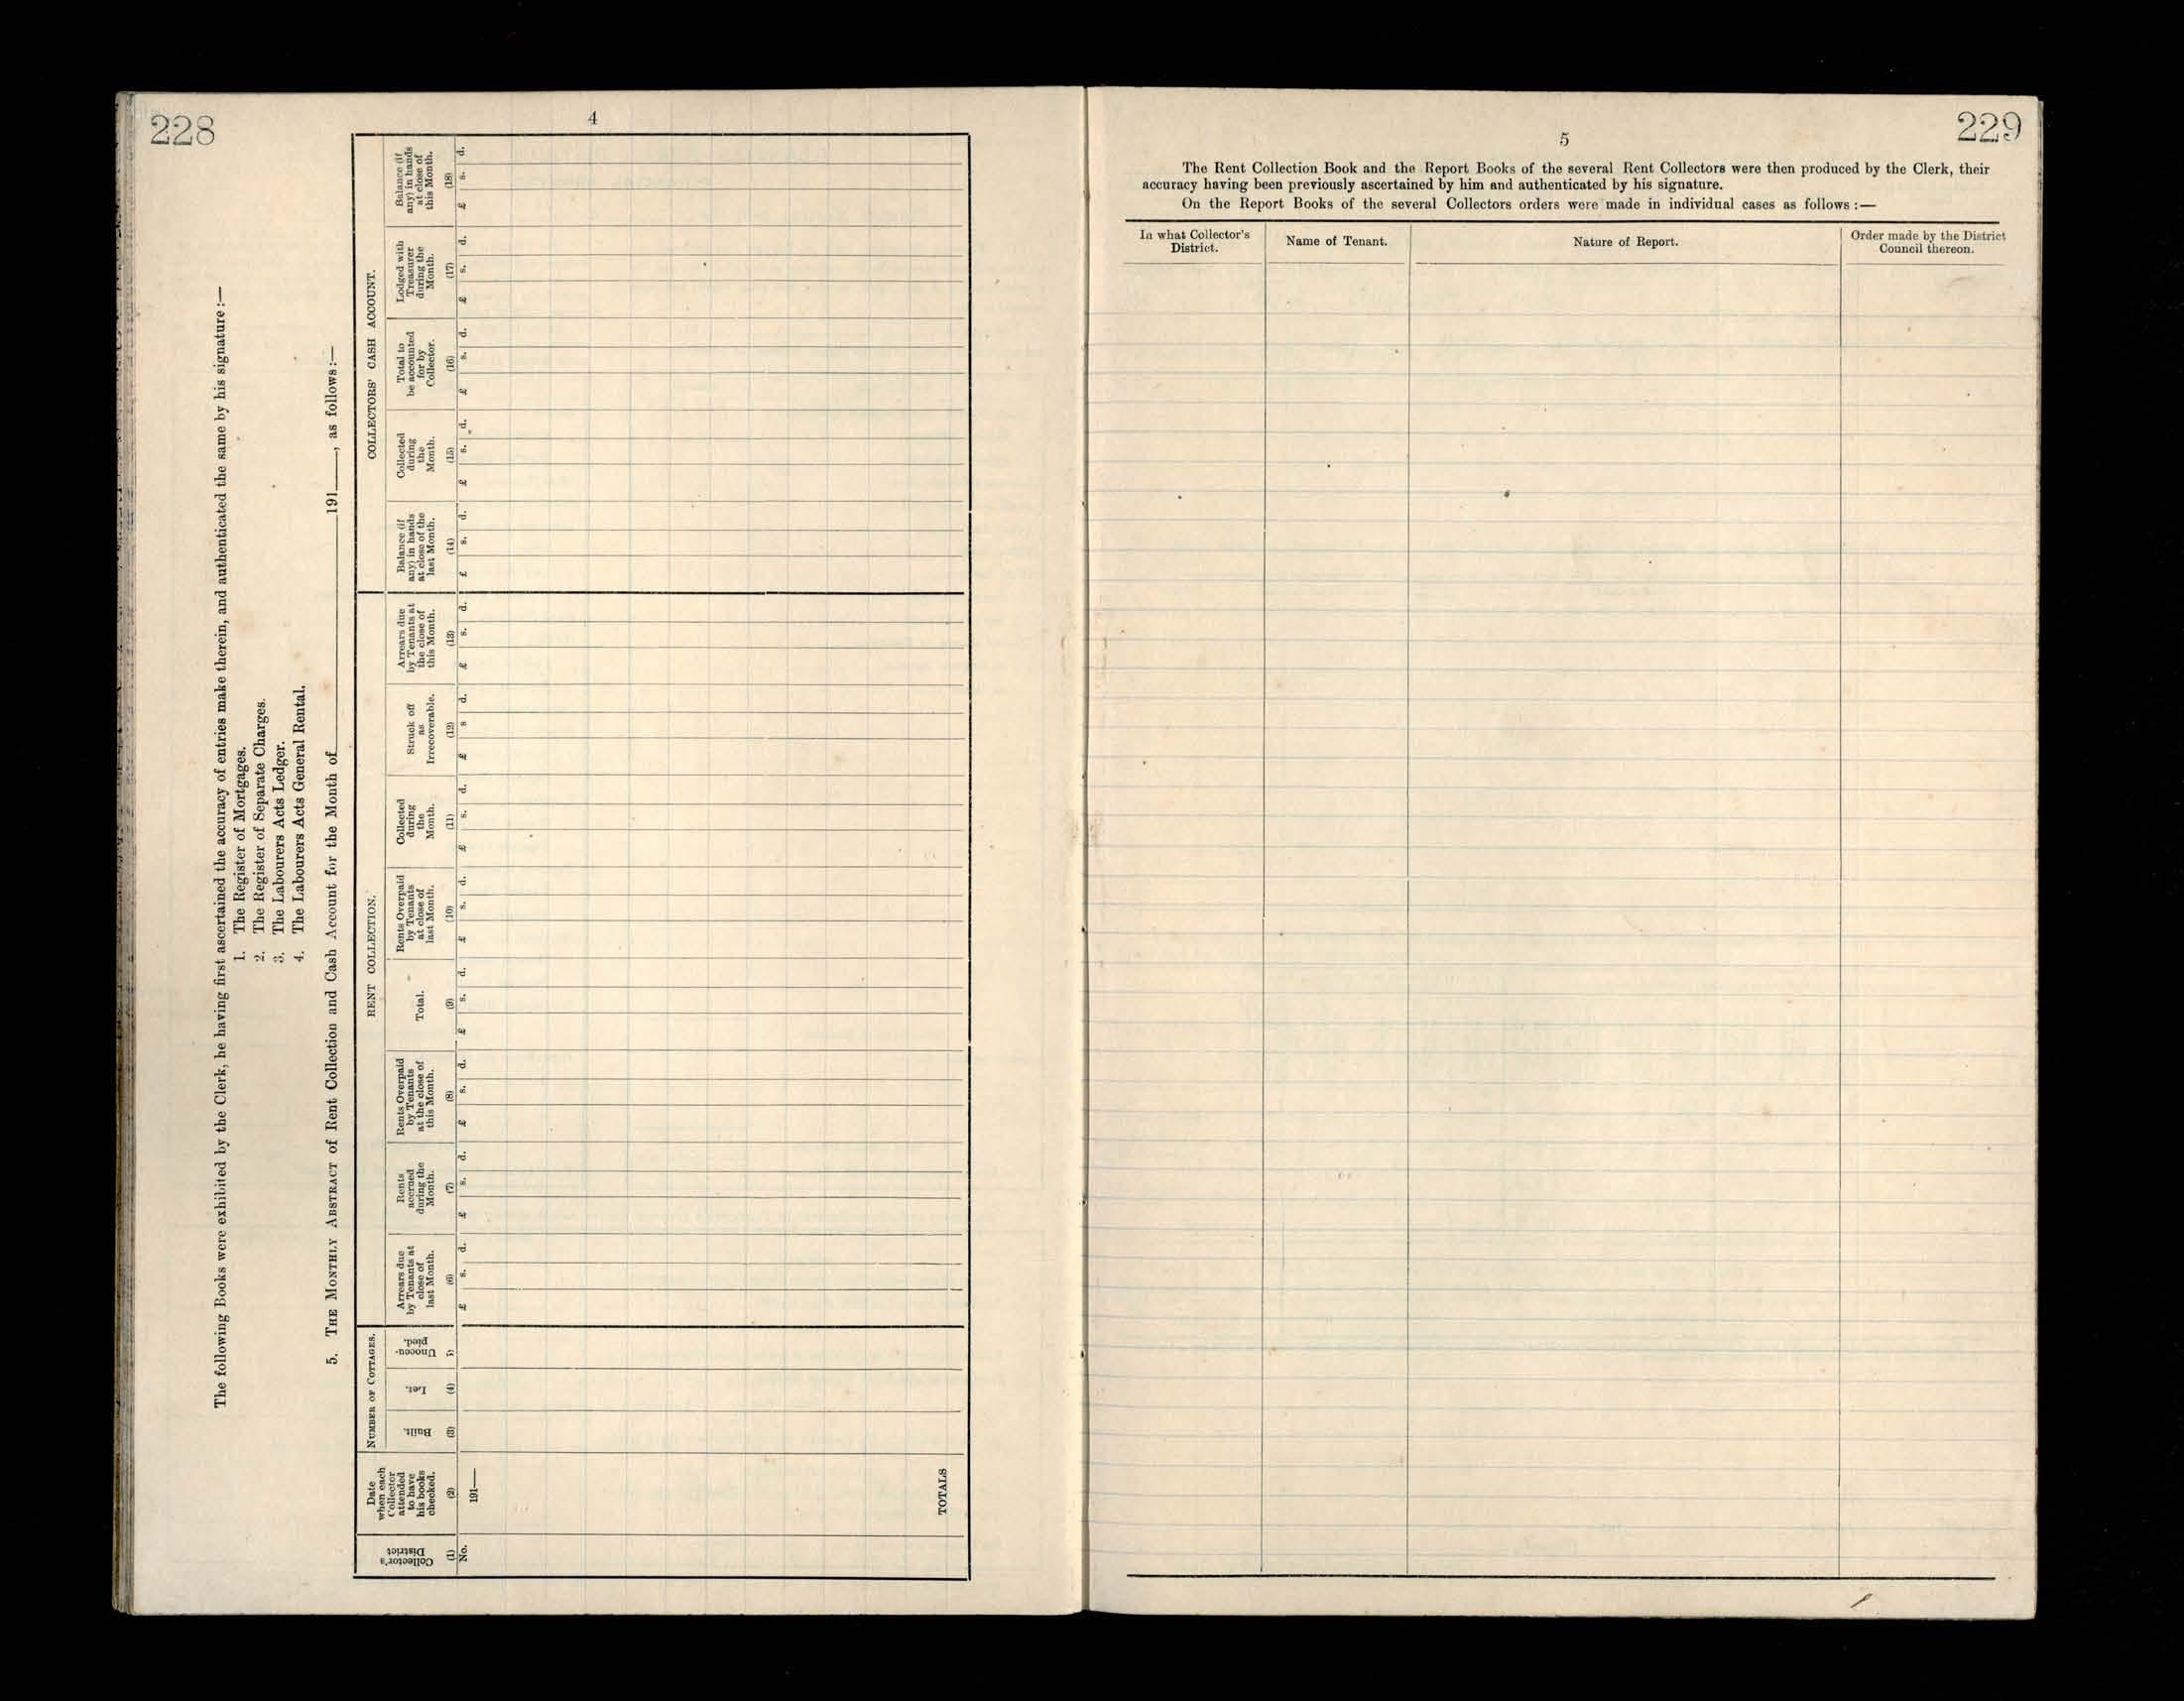 228
4
The following Books were exhibited by the Clerk, he having first ascertained the accuracy of entries make therein, and authenticated the same by his signature :—
1. The Register of Mortgages.
2. The Register of Separate Charges.
3. The Labourers Acts Ledger.
4. The Labourers Acts General Rental.
5. THE MONTHLY ABSTRACT of Rent Collection and Cash Account for the Month of ____ 191__, as follows :—
Collector's
District
(1)
No.
Date
when each
Collector
attended
to have
his books
checked.
(2)
191—
TOTALS
NUMBER OF COTTAGES.
Built.
(3)
Let.
(4)
Unoccu-
pied.
5)
RENT COLLECTION.
Arrears due
by Tenants at
close of
last Month.
(6)
£ s. d.
Rents
accrued
during the
Month.
(7)
£ s. d.
Rents Overpaid
by Tenants
at the close of
this Month.
(8)
£ s. d.
Total.
(9)
£ s. d.
Rents Overpaid
by Tenants
at close of
last Month.
(10)
£ s. d.
Collected
during
the
Month.
(11)
£ s. d.
Struck off
as
Irrecoverable.
(12)
£ s d.
Arrears due
by Tenants at
the close of
this Month.
(13)
£ s. d.
COLLECTORS' CASH ACCOUNT.
Balance (if
any) in hands
at close of the
last Month.
(14)
£ s. d.
Collected
during
the
Month.
(15)
£ s. d.
Total to
be accounted
for by
Collector.
(16)
£ s. d.
Lodged with
Treasurer
during the
Month.
(17)
£ s. d.
Balance (if
any) in hands
at close of
this Month.
(18)
£ s. d.
229
5
The Rent Collection Book and the Report Books of the several Rent Collectors were then produced by the Clerk, their
accuracy having been previously ascertained by him and authenticated by his signature.
On the Report Books of the several Collectors orders were made in individual cases as follows :—
In what Collector's
District.
Name of Tenant.
Nature of Report.
Order made by the District
Council thereon.